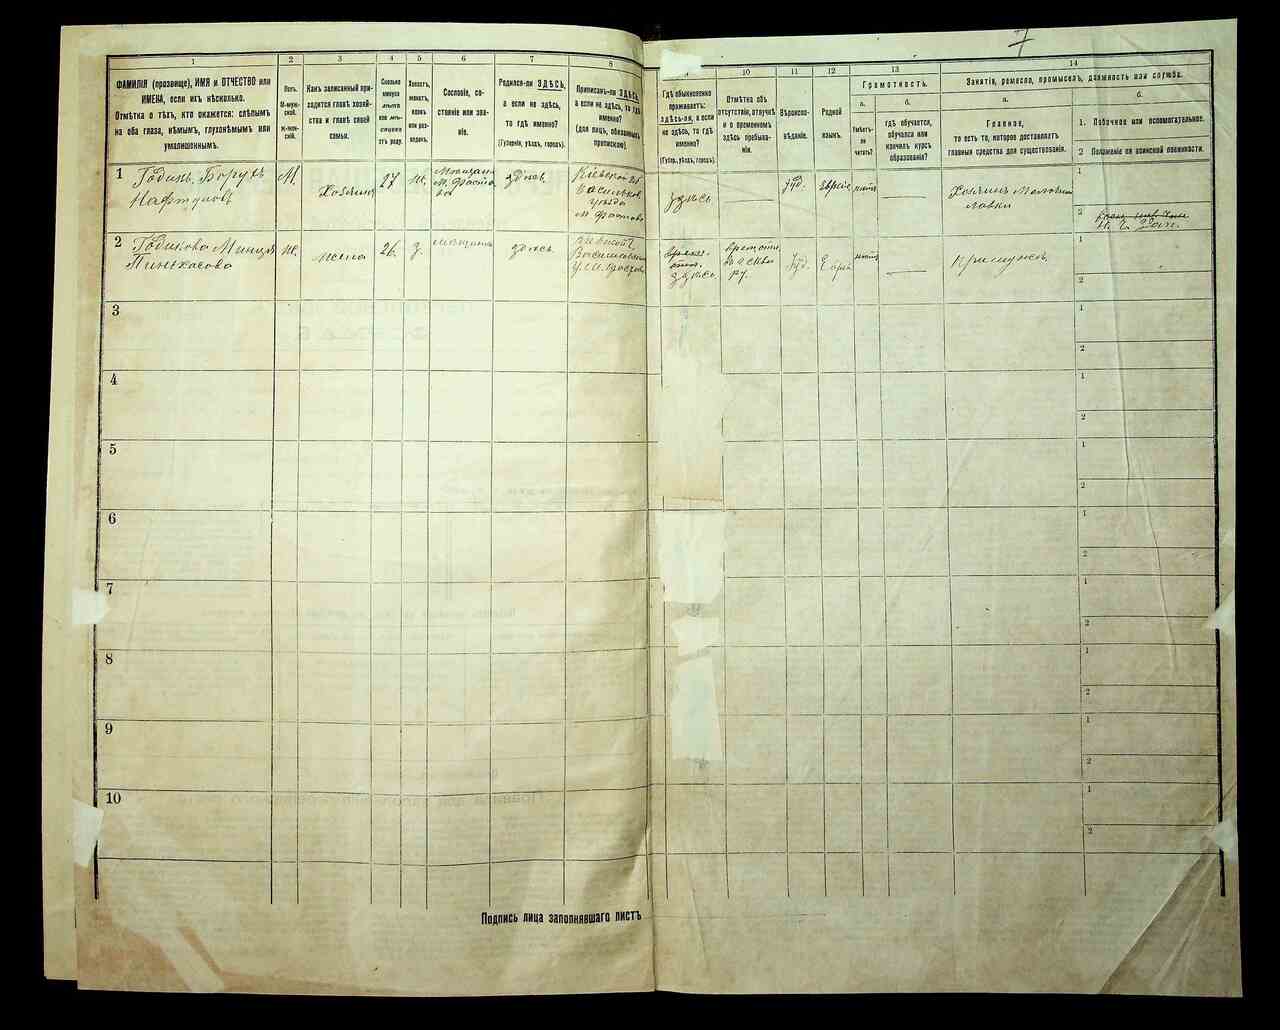 7
1
2
3
4
5
6
7
8
10
11
12
13
14
ФАМИЛІЯ (прозвище), ИМЯ и ОТЧЕСТВО или
ИМЕНА, если ихъ нѣсколько.
Отмѣтка о тѣхъ, кто окажется: слѣпымъ
на оба глаза, нѣмымъ, глухонѣмымъ или
умалишеннымъ.
Полъ.
М-муж-
ской.
Ж-жен-
скій.
Какъ записанный при-
ходится главѣ хозяй-
ства и главѣ своей
семьи.
Сколько
минуло
лѣтъ
или мѣ-
сяцевъ
отъ роду.
Холостъ,
женатъ,
вдовъ
или раз-
веденъ.
Сословіе, со-
стояніе или зва-
ніе.
Родился-ли ЗДѢСЬ,
а если не здѣсь,
то гдѣ именно?
(Губернія, уѣздъ, городъ).
Приписанъ-ли ЗДѢСЬ,
а если не здѣсь, то гдѣ
именно?
(для лицъ, обязанныхъ
припискою).
Гдѣ обыкновенно
проживаетъ:
здѣсь-ли, а если
не здѣсь, то гдѣ
именно?
(Губер., уѣздъ, городъ).
Отмѣтка объ
отсутствіи, отлучкѣ
и о временномъ
здѣсь пребыва-
ніи.
Вѣроиспо-
вѣданіе.
Родной
языкъ.
Грамотность.
а.
Умѣетъ-
ли
читать?
б.
гдѣ обучается,
обучался или
кончилъ курсъ
образованія?
Занятіе, ремесло, промыселъ, должность или служба.
а.
Главное,
то есть то, которое доставляетъ
главныя средства для существованія.
б.
1. Побочное или вспомогательное.
2 Положеніе по воинской повинности.
1
Годинъ Борухъ
Нафтуловъ
М.
Хозяинъ
27
ж.
здѣсь
Кіевской губ
Васильков.
уѣзда
м. Фастова
здѣсь
Іуд.
нѣтъ
Хозяинъ Мелочной
лавки
1
2
2
Годикова
Пинькасова
ж.
жена
26
з.
мѣщанка
здѣсь
здѣсь
Іуд.
нѣтъ
При мужѣ
1
2
3
1
2
4
1
2
5
1
2
6
1
2
7
1
2
8
1
2
9
1
2
10
1
2
Подпись лица заполнявшаго листъ